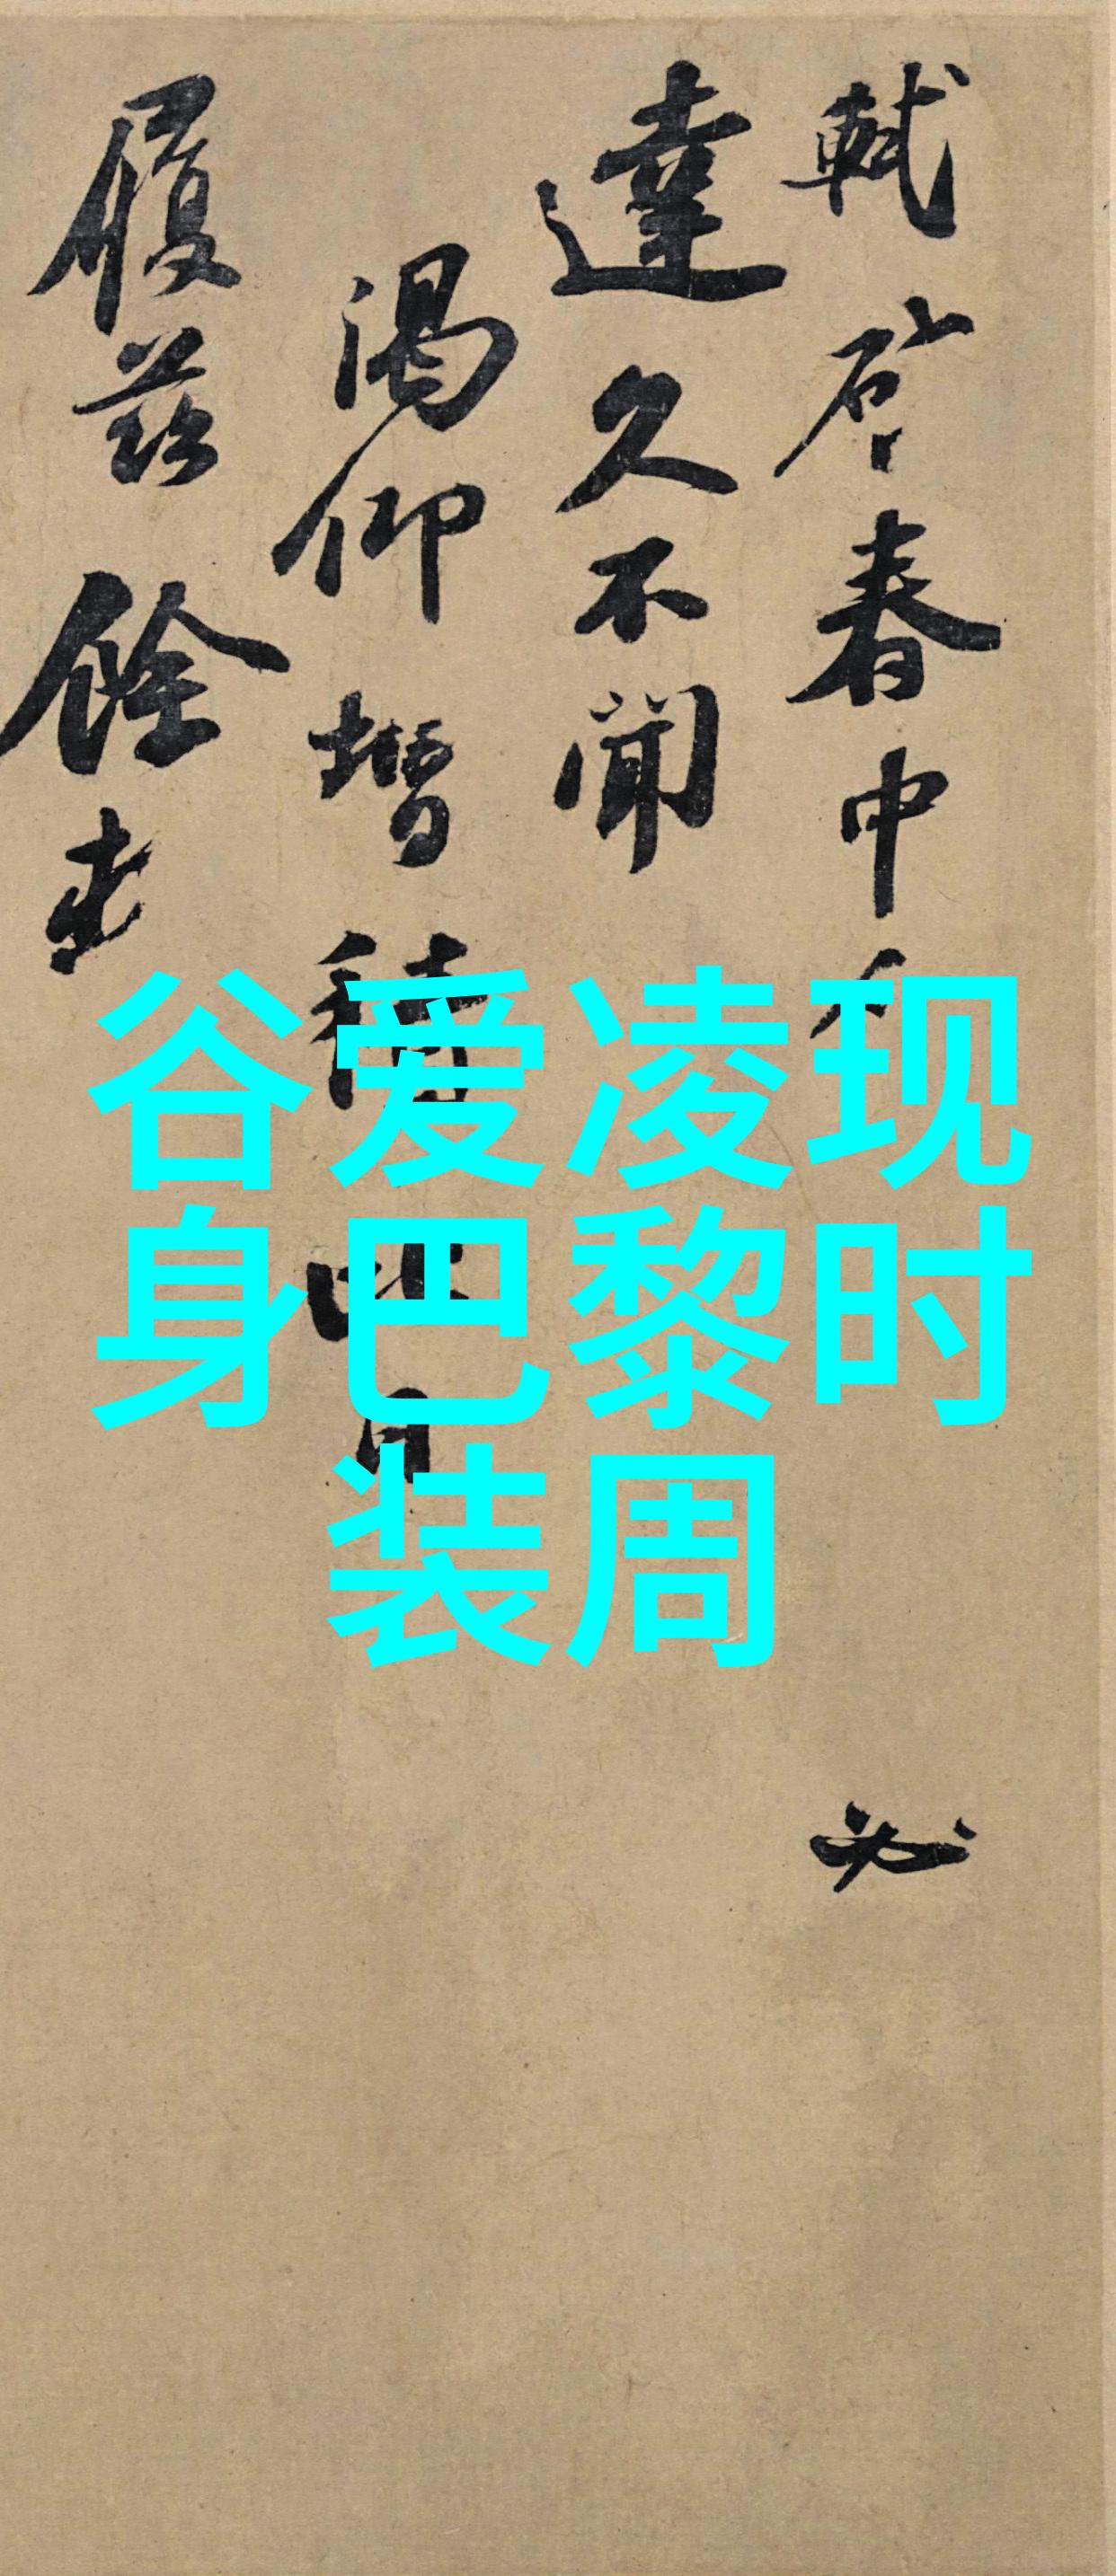 軾啓春中必
達久不聞
渴仰增積比日
履茲餘
谷爱凌现
身巴黎时
装周